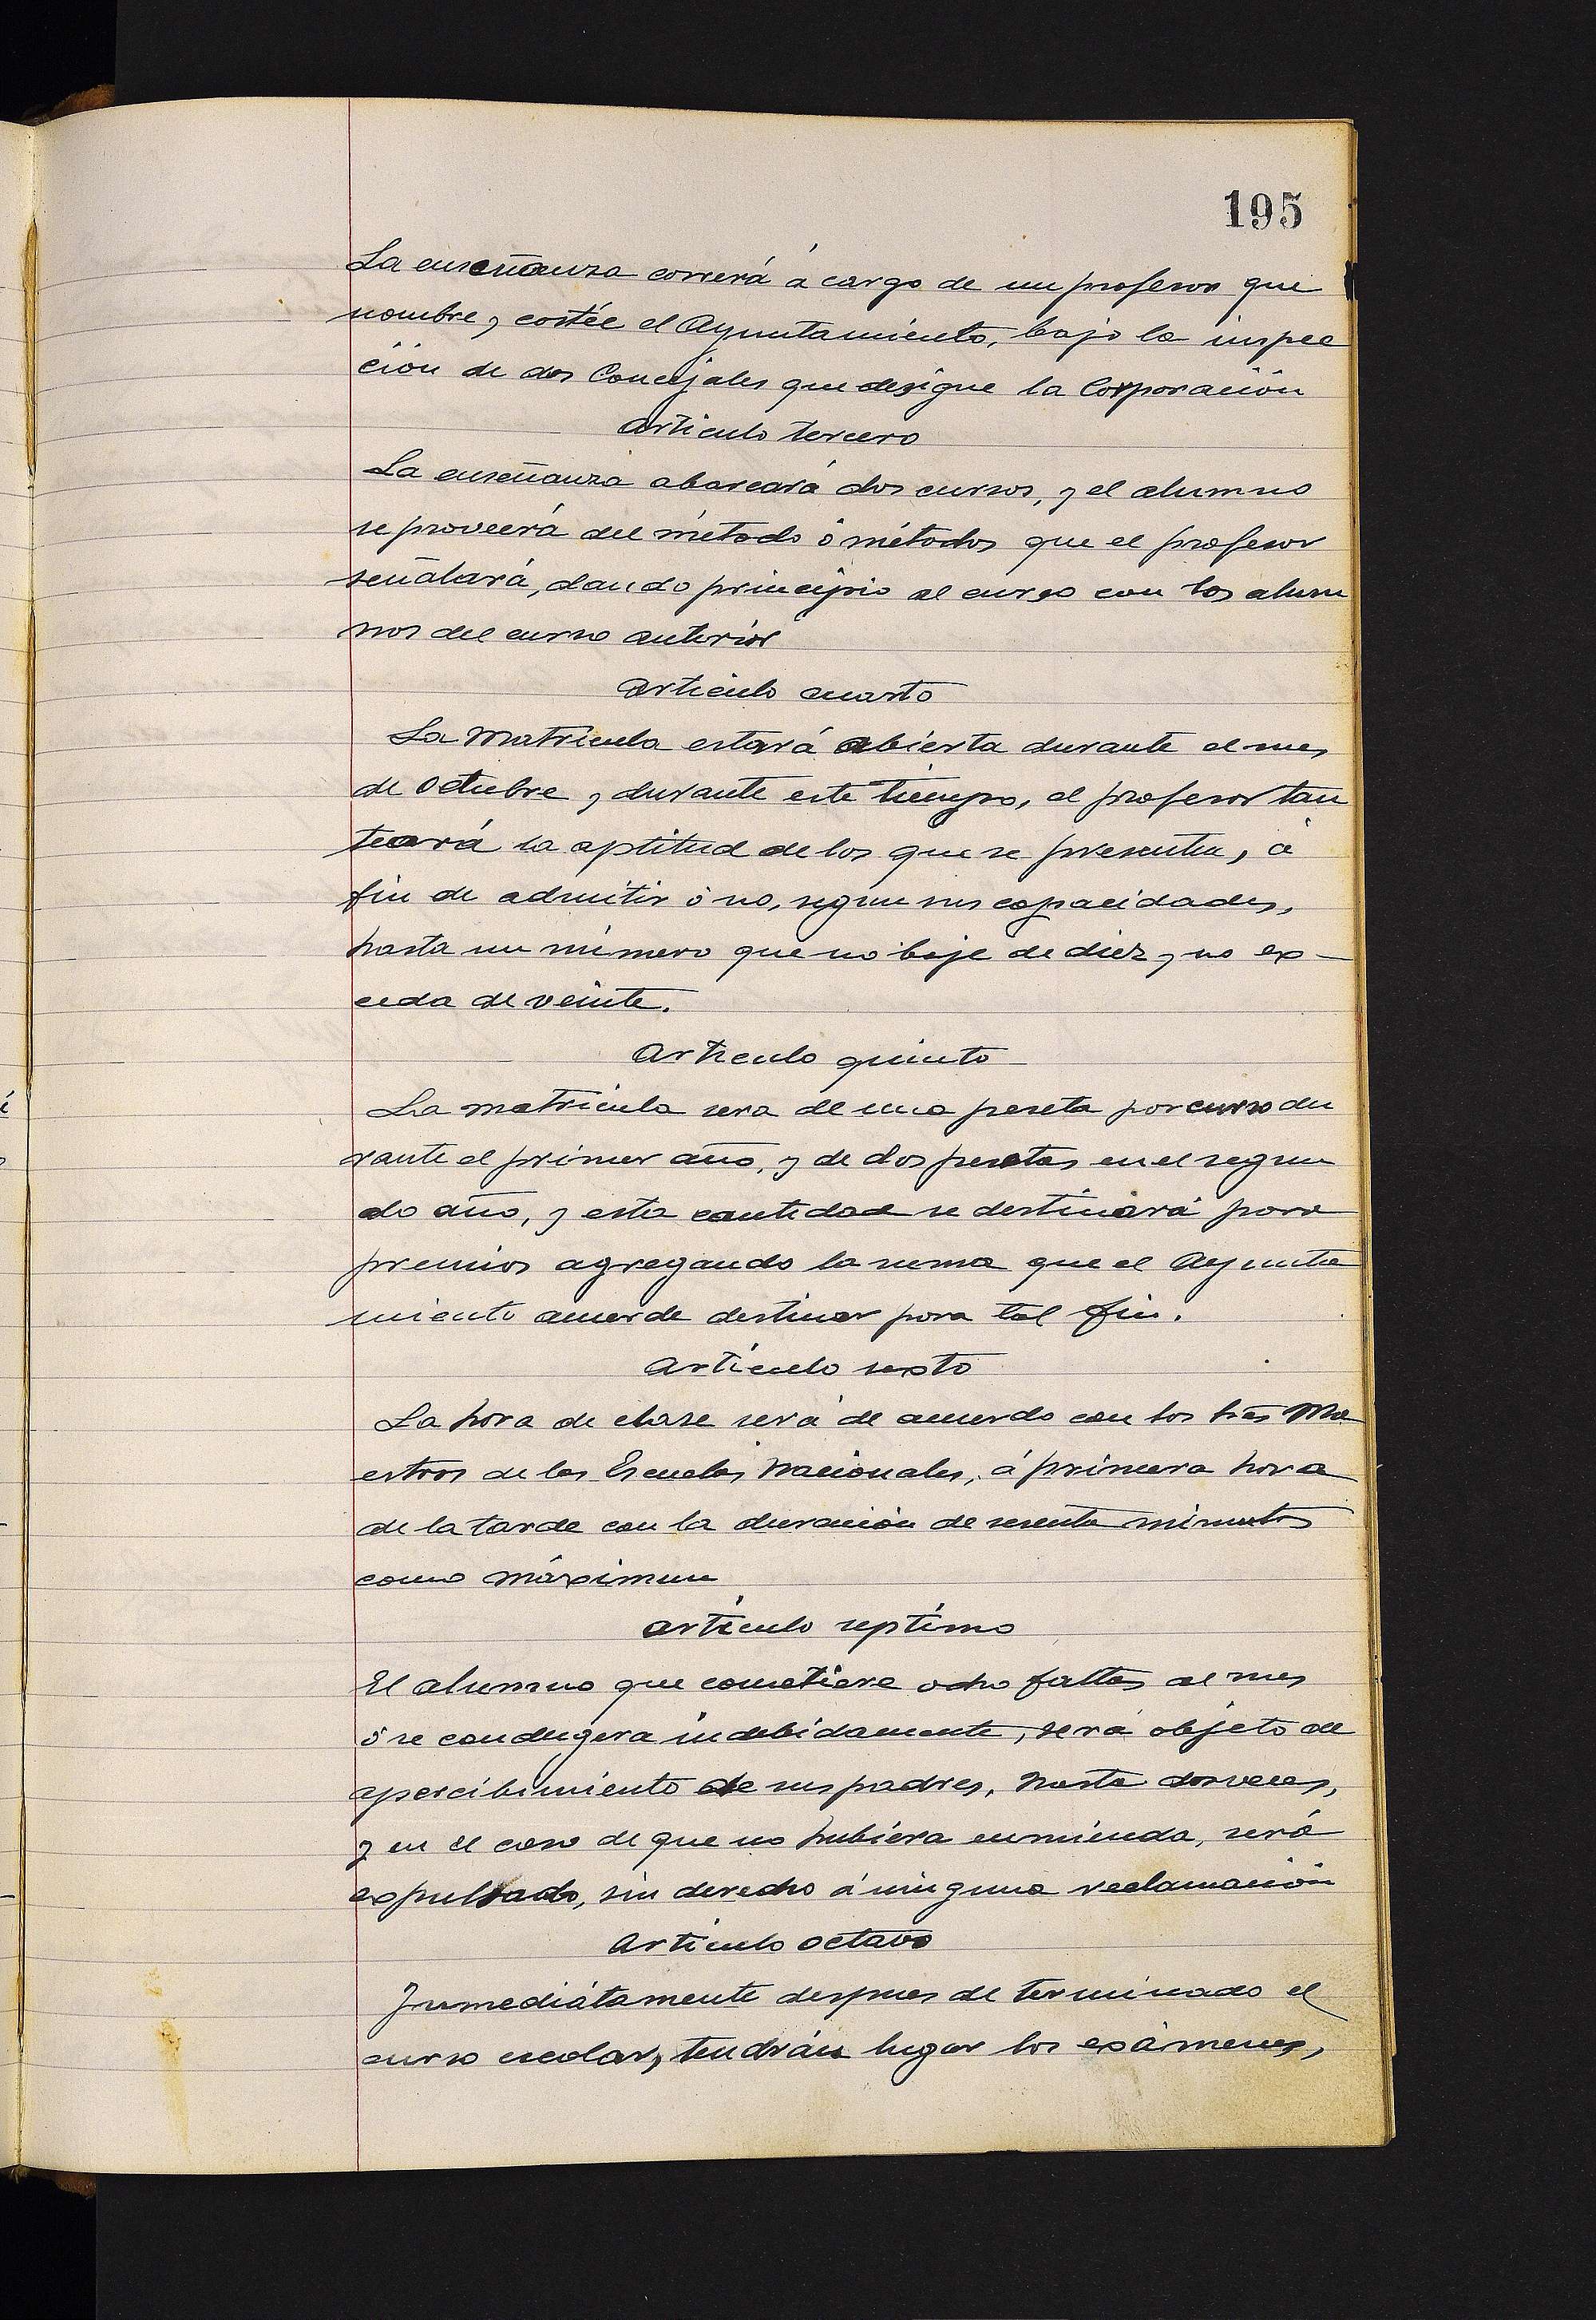 195
La enseñanza correrá á cargo de un profesor que
nombre y costée el Ayuntamiento, bajo la inspec
ción de dos Concejales que desigue la Corporación
Artículo tercero
La enseñanza abarcará dos cursos, y el alumno
se proveerá del método ó métodos que el profesor
señalará, dando principio al curso con los alum
nos del curso anterior
Artículo cuarto
La Matrícula estará abierta durante el mes
de Octubre y durante este tiempo, el profesor tan
teará la aptitud de los que se presenten, á
fin de admitir ó no, segun sus capacidades,
hasta un número que no baje de diez y no ex-
ceda de veinte.
Artículo quinto
La matrícula sera de una peseta por curso du
rante el primer año, y de dos pesetas en el segun
do año, y esta cantidad se destinará para
premios agregando la suma que el Ayunta
miento acuerde destinar para tal fin.
Artículo sexto
La hora de clase será de acuerdo con los tres Ma
estros de las Escuelas Nacionales, á primera hora
de la tarde con la duración de sesenta minutos
como máximun
Artículo septimo
El alumno que cometiere ocho faltas al mes
ó se condugera indebidamente, será objeto de
apercibimiento de sus padres, hasta dos veces,
y en el caso de que no hubiera enmienda, será
expulsado, sin derecho á ninguna reclamación
Artículo octavo
Inmediátamente despues de terminado el
curso escolar, tendrán lugar los exámenes,